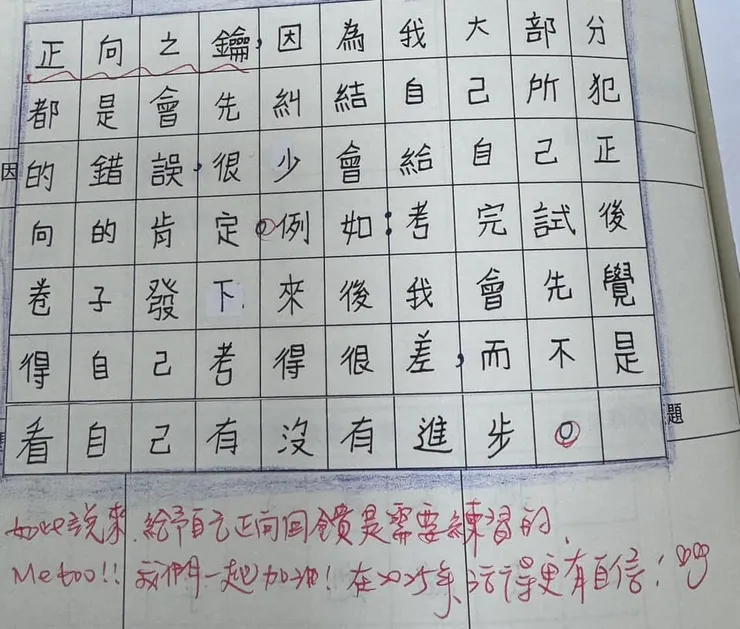 正向之鑰,因為我大部分
都是會先糾結自己所犯
的錯誤,很少會給自己正
向的肯定。例如:考完試後
卷子發下來後我會先覺
得自己考得很差,而不是
看自己有沒有進步。
因
題
如此說來,給予自己正向回饋是需要練習的,
Me too!! 我們一起加油!在2025年,活得更有自信!